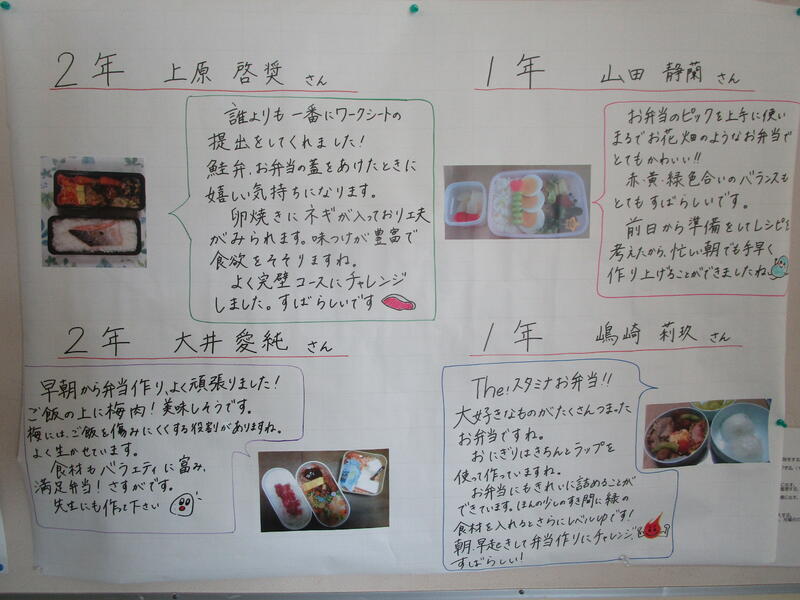 2年 上原 啓奨 さん
誰よりも一番にワークシートの
提出をしてくれました!
鮭弁、お弁当の蓋をあけたときに
嬉しい気持ちになります。
卵焼きにネギが入っており工夫
がみられます。味つけが豊富で
食欲をそそりますね。
よく完壁コースにチャレンジ
しました。すばらしいです
1年 山田 静蘭 さん
お弁当のピックを上手に使い
まるでお花畑のようなお弁当で
とてもかわいい!!
赤・黄・緑色合いのバランスも
とてもすばらしいです。
前日から準備をしてレシピを
考えたから、忙しい朝でも手早く
作り上げることができましたね
2年 大井 愛純 さん
早朝から弁当作り、よく頑張りました!
ご飯の上に梅肉!美味しそうです。
梅には、ご飯を傷みにくくする役割がありますね。
よく生かせています。
食材もバラエティに富み、
満足弁当!さすがです。
先生にも作って下さい
1年 嶋崎 莉玖 さん
The!スタミナお弁当!!
大好きなものがたくさんつまった
お弁当ですね。
おにぎりはきちんとラップを
使って作っていますね。
お弁当にもきれいに詰めることが
できています。ほんの少しのすき間に緑の
食材を入れるとさらにレベルupです!
朝、早起きして弁当作りにチャレンジ、
すばらしい!